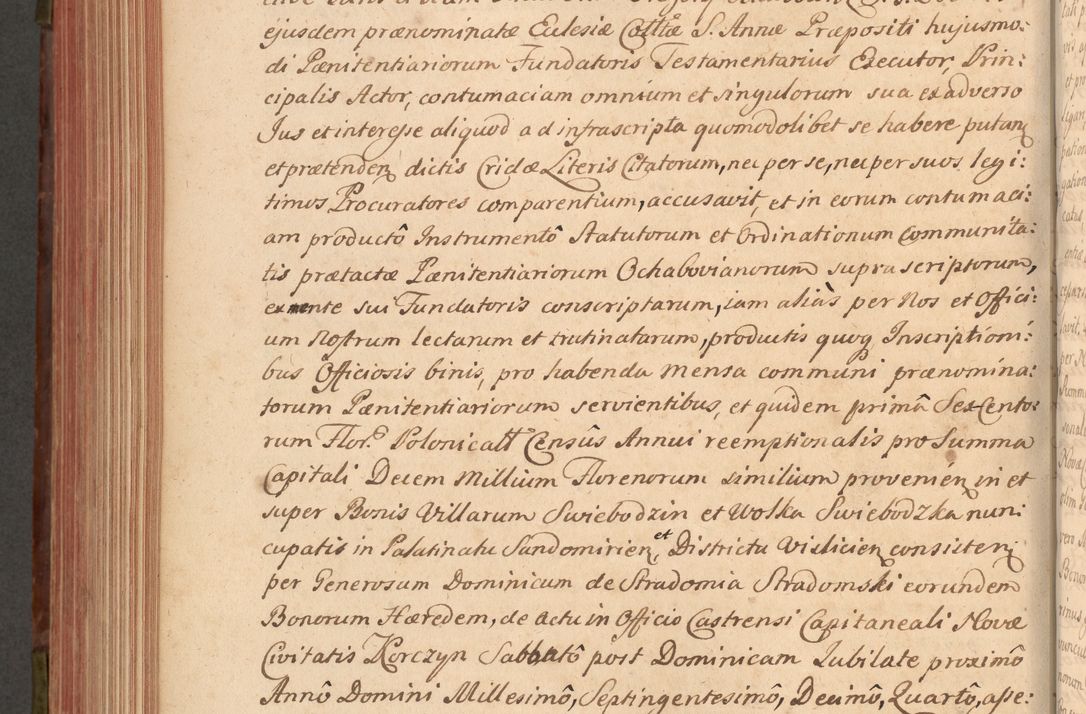 ejusdem prænominatæ Eclesiæ Cottæ S. Annæ Præpositi hujusmo:
di Pænitentiariorum Fundatoris Testamentarius Executor, Prin:
cipalis Actor, contumaciam omnium et singulorum sua ex adverso
Jus et interesse aliquod ad infrascripta quomodolibet se habere putan
et prætenden dictis Cridæ Literis Citatorum, nec per se, nec per suos legi:
timos Procuratores comparentium, accusavit, et in eorum contumaci:
am productô Instrumentô Statutorum et Ordinationum Communita:
tis prætactæ Pænitentiariorum Ochabovianorum supra scriptorum,
ex mente sui Fundatoris conscriptarum, iam aliàs per Nos et Offici:
um Nostrum lectarum et trutinatarum, productis quoq Inscriptioni:
bus Officiosis binis, pro habenda mensa communi prænomina:
torum Pænitentiariorum servientibus, et quidem primâ Sex Cento:
rum Flor. Polonicall Censûs Annui reemptionalis pro Summa
Capitali Decem Millium Florenorum similium provenien in et
super Bonis Villarum Swiebodzin et Wolka Swiebodzka nun:
cupatis in Palatinatu Sandomirien, et Districtu Vislicien consisten
per Generosum Dominicum de Stradomia Stradomski eorundem
Bonorum Hæredem, de actu in Officio Castrensi Capitaneali Novæ
Civitatis Korczyn Sabbatô post Dominicam Jubilate proximô
Annô Domini Millesimô, Septingentesimô, Decimô, Quartô, asse: